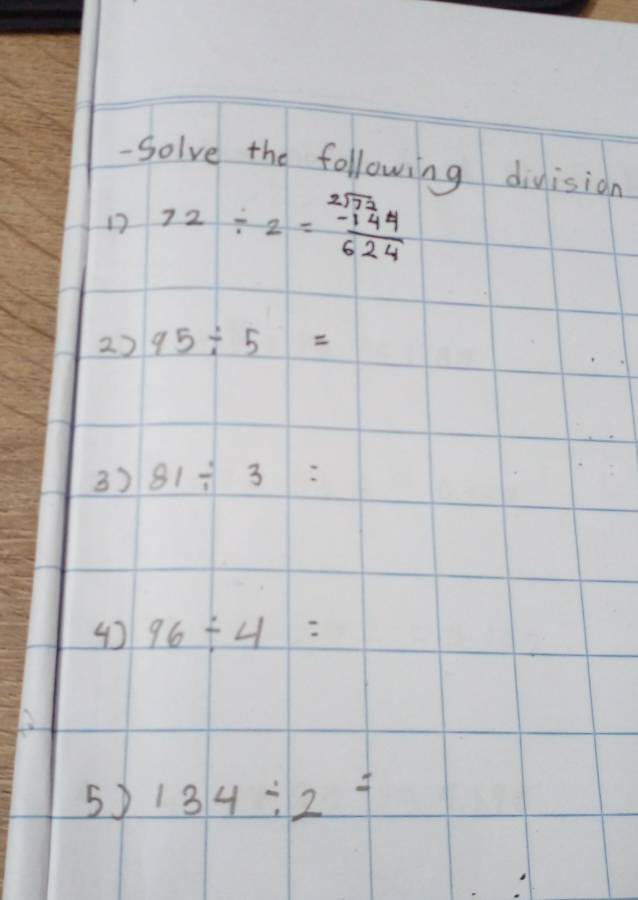 -Solve the following division
1) 72 ÷ 2 = 2√72
-144
624
2) 95 ÷ 5 =
3) 81 ÷ 3 =
4) 96 ÷ 4 =
5) 134 ÷ 2 =